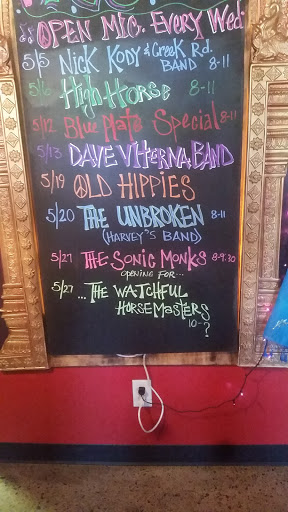 OPEN MIC. EVERY Wed
5/5 NICK KODY & Creek Rd.
BAND 8-11
5/6 High Horse 8-11
5/12 Blue Plate Special 8-11
5/13 DAVE VITERNA BAND
5/19 OLD HIPPIES
5/20 THE UNBROKEN 8-11
(HARVEY'S BAND)
5/27 THE SONIC MONKS 8-9:30
OPENING FOR...
5/27 ...THE WATCHFUL
HORSEMASTERS
10-?